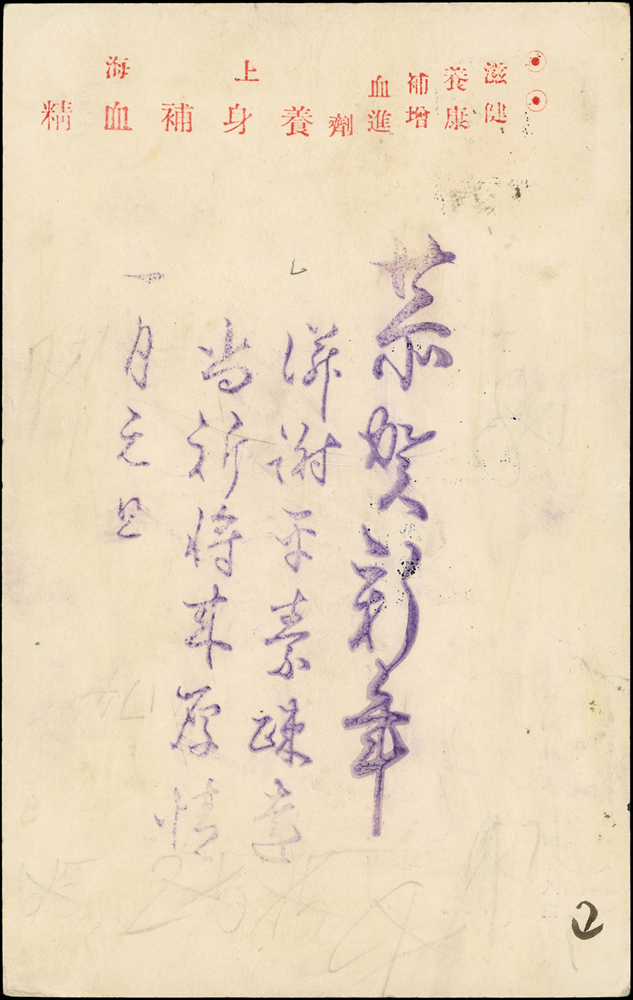 滋養補血劑
健康增進
上海
養身補血精
恭賀新年
併謝平素疎遠
尚祈将来厚情
一月元旦
2